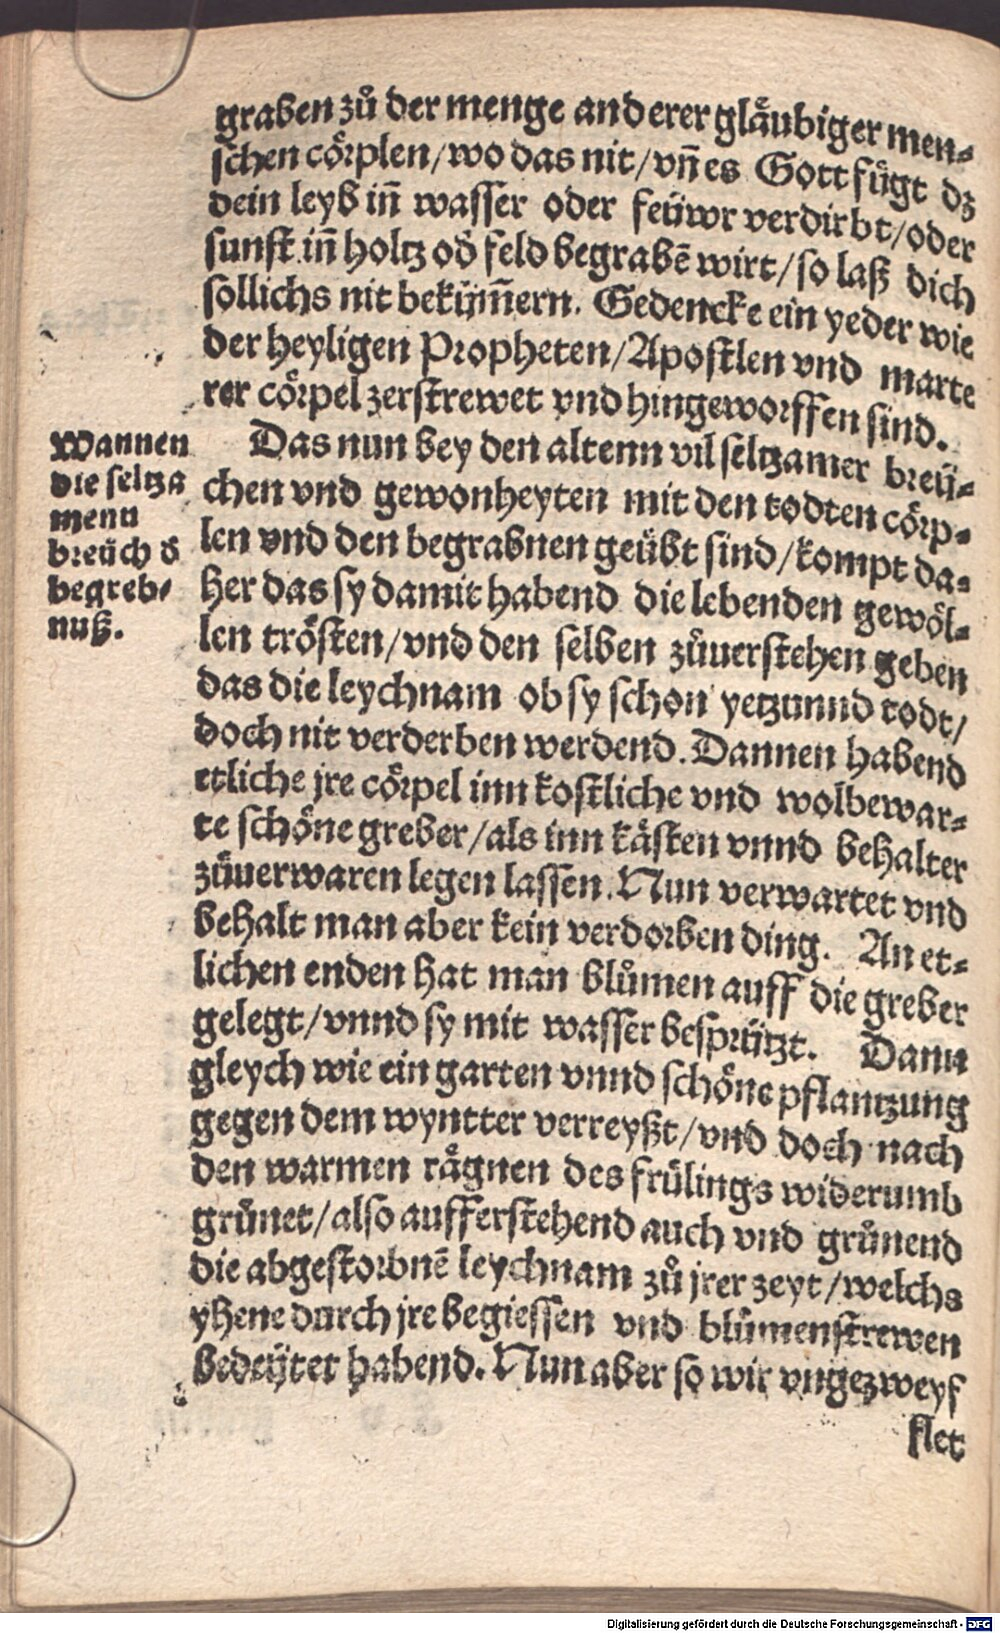 graben zuͦ der menge anderer glaͤubiger men⸗
schen coͤrplen/wo das nit/vn̄ es Gott fuͤgt dz
dein leyb in̄ wasser oder feüwr verdirbt/oder
sunst in̄ holtz od̓ feld begrabē wirt/so laß dich
sollichs nit beküm̄ern. Gedencke ein yeder wie
der heyligen Propheten/Apostlen vnd marte
rer coͤrpel zerstrewet vnd hingeworffen sind.
Das nun bey den altenn vil seltzamer breü⸗
chen vnd gewonheyten mit den todten coͤrp⸗
len vnd den begrabnen geuͤbt sind/kompt da⸗
her das sy damit habend die lebenden gewoͤl⸗
len troͤsten/vnd den selben zuͦuerstehen geben
das die leychnam ob sy schon yetzunnd todt/
doch nit verderben werdend. Dannen habend
etliche jre coͤrpel inn kostliche vnd wolbewar⸗
te schoͤne greber/als inn kaͤsten vnnd behalter
zuͦuerwaren legen lassen. Nun verwartet vnd
behalt man aber kein verdorben ding. An et⸗
lichen enden hat man bluͦmen auff die greber
gelegt/vnnd sy mit wasser besprützt. Dann
gleych wie ein garten vnnd schoͤne pflantzung
gegen dem wyntter verreyßt/vnd doch nach
den warmen raͤgnen des fruͤlings widerumb
gruͤnet/also aufferstehend auch vnd gruͤnend
die abgestorbnē leychnam zuͦ jrer zeyt/welchs
yhene durch jre begiessen vnd bluͦmenstrewen
bedeütet habend. Nun aber so wir vngezweyf
flet
Wannen
die seltza
menn
breüch d̓
begreb⸗
nuß.
Digitalisierung gefördert durch die Deutsche Forschungsgemeinschaft - DFG